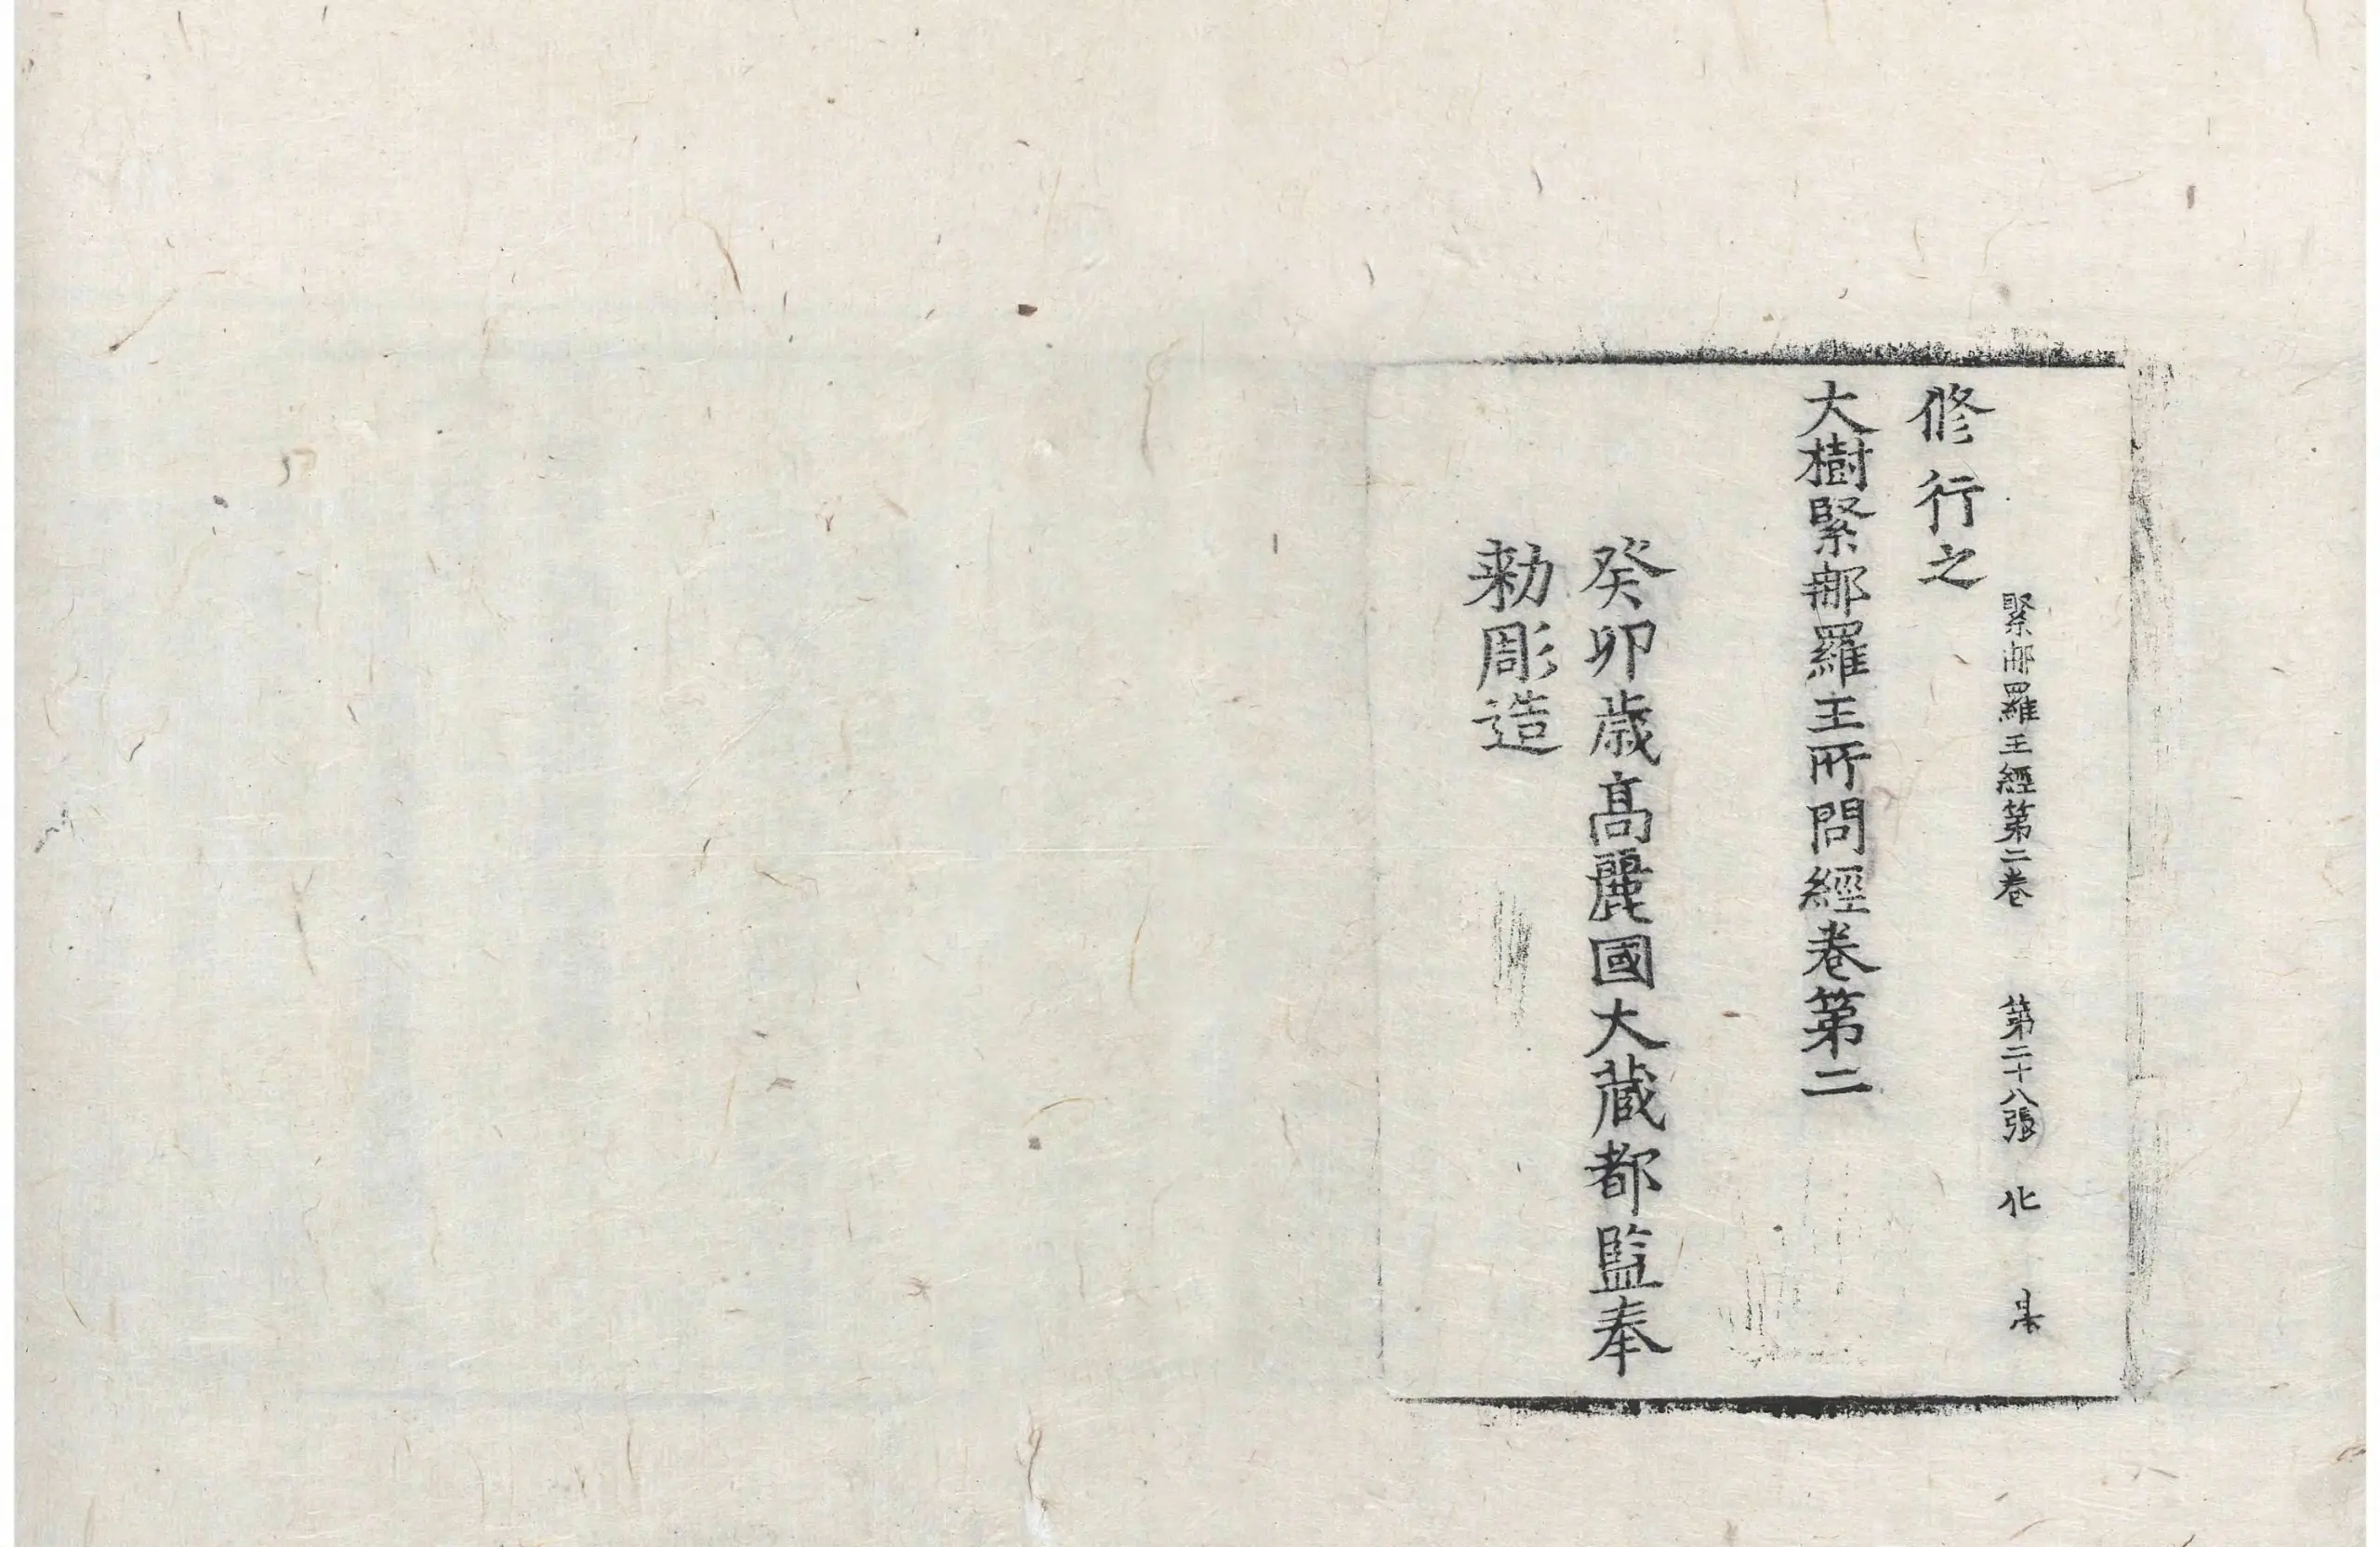 緊那羅王經第二卷　第二十八張　化
修行之
大樹緊那羅王所問經卷第二
癸卯歲高麗國大藏都監奉
勅彫造